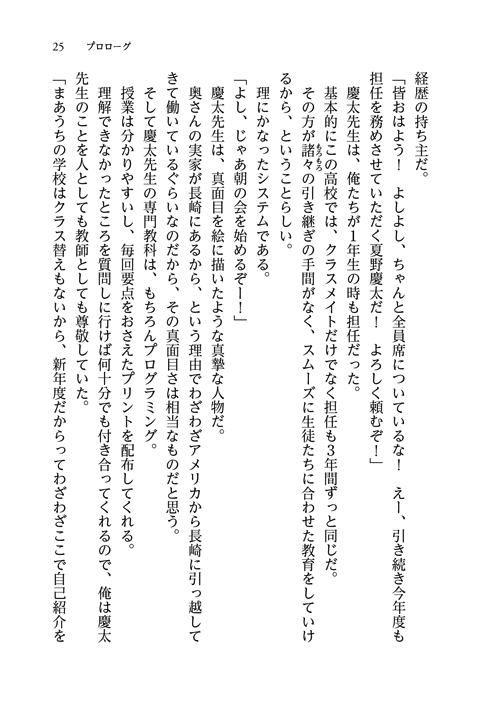 25　プロローグ
経歴の持ち主だ。
「皆おはよう！　よしよし、ちゃんと全員席についているな！　えー、引き続き今年度も
担任を務めさせていただく夏野慶太だ！　よろしく頼むぞ！」
慶太先生は、俺たちが1年生の時も担任だった。
基本的にこの高校では、クラスメイトだけでなく担任も3年間ずっと同じだ。
その方が諸々の引き継ぎの手間がなく、スムーズに生徒たちに合わせた教育をしていけ
るから、ということらしい。
理にかなったシステムである。
「よし、じゃあ朝の会を始めるぞー！」
慶太先生は、真面目を絵に描いたような真摯な人物だ。
奥さんの実家が長崎にあるから、という理由でわざわざアメリカから長崎に引っ越して
きて働いているぐらいなのだから、その真面目さは相当なものだと思う。
そして慶太先生の専門教科は、もちろんプログラミング。
授業は分かりやすいし、毎回要点をおさえたプリントを配布してくれる。
理解できなかったところを質問しに行けば何十分でも付き合ってくれるので、俺は慶太
先生のことを人としても教師としても尊敬していた。
「まあうちの学校はクラス替えもないから、新年度だからってわざわざここで自己紹介を